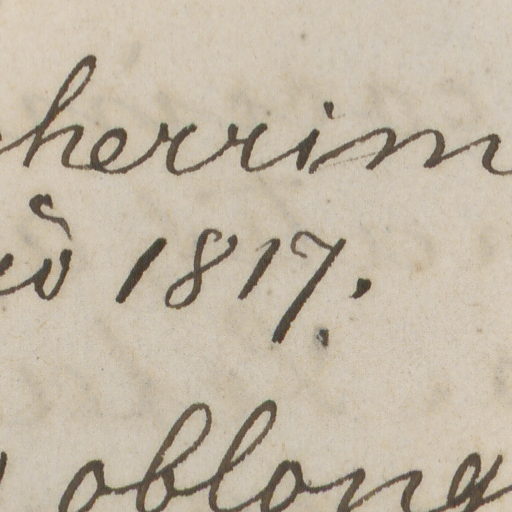 herrim
1817.
oblong